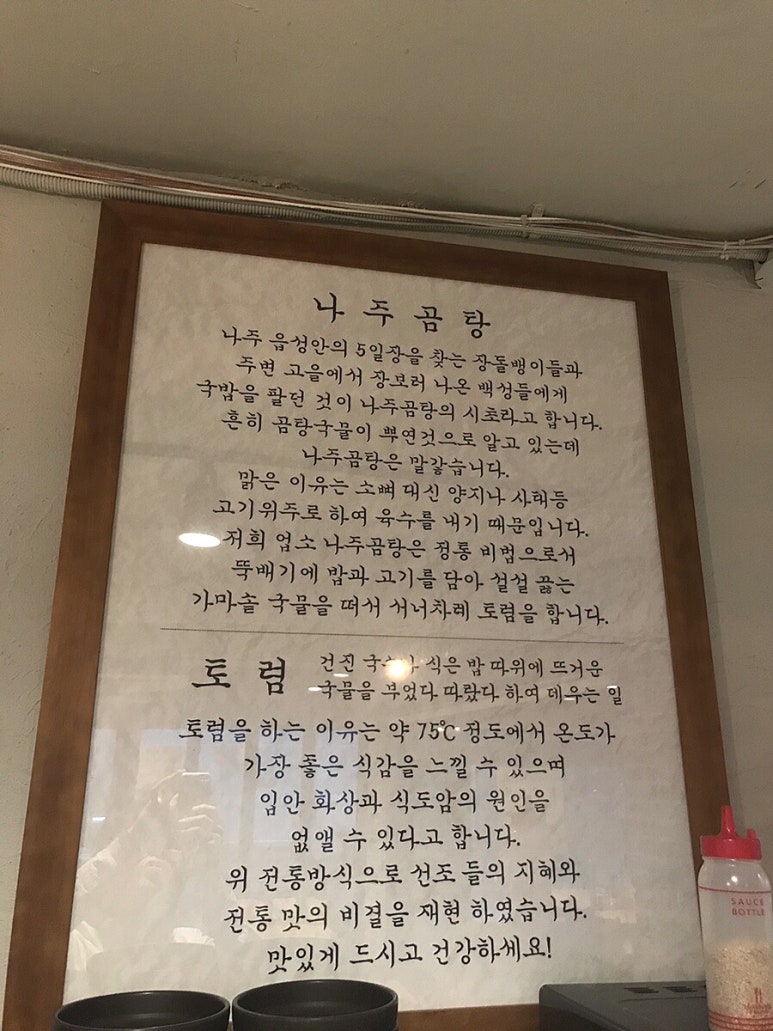 나주곰탕
나주 읍성안의 5일장을 찾는 장돌뱅이들과
주변 고을에서 장보러 나온 백성들에게
국밥을 팔던 것이 나주곰탕의 시초라고 합니다.
흔히 곰탕국물이 뿌연것으로 알고 있는데
나주곰탕은 말갛습니다.
맑은 이유는 소뼈 대신 양지나 사태등
고기위주로 하여 육수를 내기 때문입니다.
저희 업소 나주곰탕은 정통 비법으로서
뚝배기에 밥과 고기를 담아 설설 끓는
가마솥 국물을 떠서 서너차례 토렴을 합니다.
토렴
건진 식은 밥 따위에 뜨거운
국물을 부었다 따랐다 하여 데우는 일
토렴을 하는 이유는 약 75℃ 정도에서 온도가
가장 좋은 식감을 느낄 수 있으며
입안 화상과 식도암의 원인을
없앨 수 있다고 합니다.
위 전통방식으로 선조 들의 지혜와
전통 맛의 비결을 재현 하였습니다.
맛있게 드시고 건강하세요!
SAUCE
BOTTLE